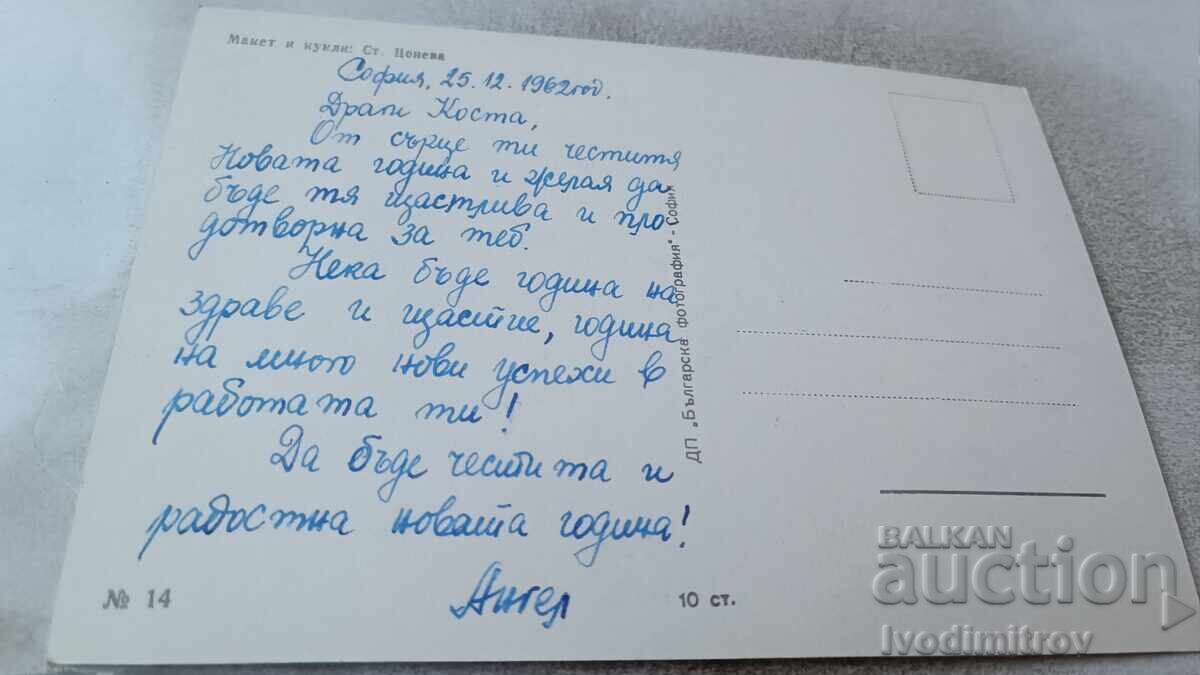 Макет и кукли: Ст. Цонева
София, 25.12.1962 год.
Драги Коста,
От сърце ти честитя
Новата година и желая да
бъде тя щастлива и пло-
дотворна за теб.
Нека бъде година на
здраве и щастие, година
на много нови успехи в
работата ти!
Да бъде честита и
радостна новата година!
Ангел
№ 14
10 ст.
ДП „Българска фотография" - София
BALKAN
auction
Ivodimitrov